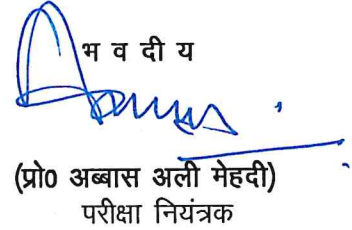 भ व दी य
(प्रो0 अब्बास अली मेहदी)
परीक्षा नियंत्रक